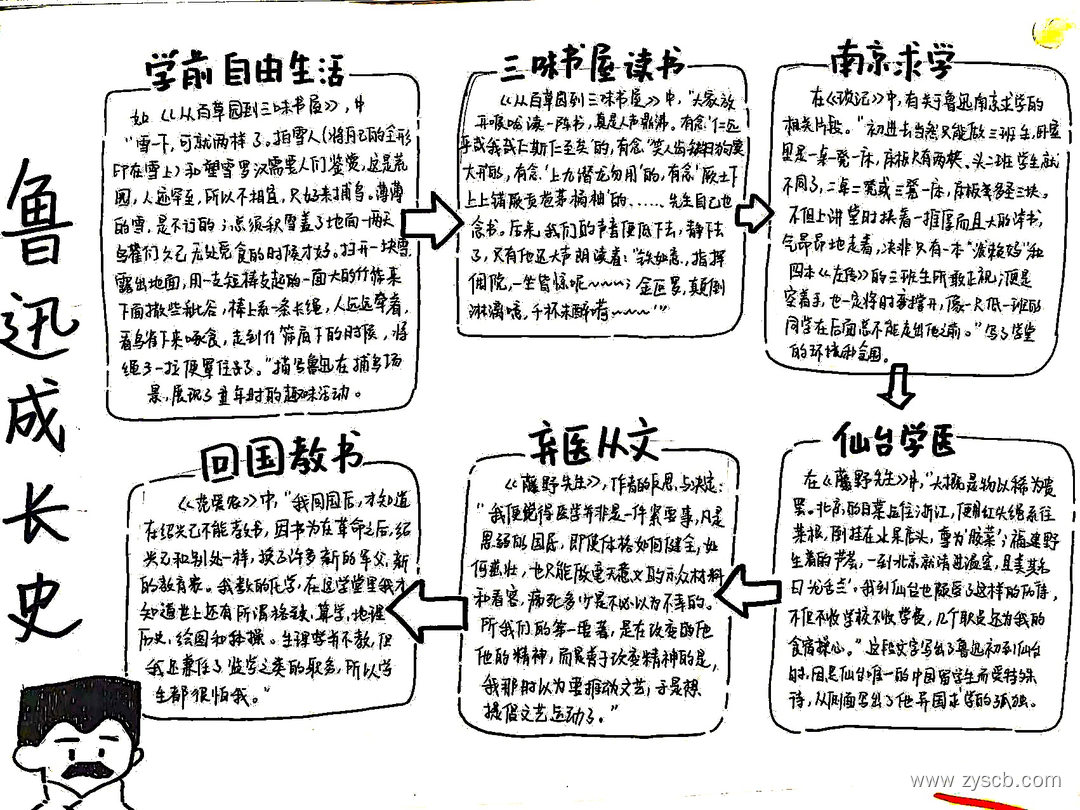 鲁迅成长史
学前自由生活
如《从百草园到三味书屋》,中
"雪一下,可就两样了。拍雪人(将自己的全形
印在雪上)和塑雪罗汉需要人们鉴赏,这是荒
园,人迹罕至,所以不相宜,只好来捕鸟。薄薄
的雪,是不行的;总须积雪盖了地面一两天
鸟雀们久已无处觅食的时候才好。扫开一块雪
露出地面,用一支短棒支起的一面大的竹筛来
下面撒些秕谷,棒上系一条长绳,人远远牵着,
看鸟雀下来啄食,走到竹筛底下的时候,将
绳子一拉便罩住了。"描写鲁迅在捕鸟场
景,展现了童年时的趣味活动。
三味书屋读书
《从百草园到三味书屋》中,"大家放
开喉咙读一阵书,真是人声鼎沸。有念"仁远
乎哉我欲仁斯仁至矣"的,有念"笑人齿缺曰狗窦
大开"的,有念"上九潜龙勿用"的,有念"厥土下
上上错厥贡苞茅橘柚"的......先生自己也
念书。后来,我们的声音便低下去,静下去
了,只有他还大声朗读着:"铁如意,指挥
倜傥,一坐皆惊呢~~~;金叵罗,颠倒
淋漓噫,千杯未醉嗬~~~~"'"
南京求学
在《琐记》中,有关于鲁迅南京求学的
相关片段。"初进去当然只能做三班生,卧室
里是一桌一凳一床,床板只有两块。头二班学生就
不同了,二桌二凳或三凳一床,床板多至三块。
不但上讲堂时挟着一堆厚而且大的洋书,
气昂昂地走着,决非只有一本"泼赖妈"和
四本《左传》的三班生所敢正视;便是
空着手,也一定将肘弯撑开,像一只 低一班的
同学在后面总不能走出他之前。"写了学堂
的环境和氛围。
仙台学医
在《藤野先生》中,"大概是物以稀为贵
罢。北京的白菜运往浙江,便用红头绳系住
菜根,倒挂在水果店头,尊为"胶菜";福建野
生着的芦荟,一到北京就请进温室,且美其名
曰"龙舌兰"。我到仙台也颇受了这样的优待,
不但学校不收学费,几个职员还为我的
食宿操心。"这段文字写出了鲁迅初到仙台
时,因是仙台唯一的中国留学生而受特殊
待,从侧面写出了他异国求学的孤独。
弃医从文
《藤野先生》,作者的反思与决定:
"我便觉得医学并非一件紧要事,凡是
愚弱的国民,即使体格如何健全,如
何茁壮,也只能做毫无意义的示众材料
和看客,病死多少是不必以为不幸的。
所我们的第一要著,是在改变他
他们的精神,而最善于改变精神的是,
我那时以为要推动文艺,于是想
提倡文艺运动了。"
回国教书
《范爱农》中,"我回国后,才知道
在绍兴已不能教书,因书为在革命之后,绍
兴也和别处一样,换了许多新的军父,新
的教育家。我教的化学,在这学堂里我才
知道世上还有所谓格致,算学,地理
历史,绘图和体操。生理学并不教,但
我还兼任了监学之类的职务,所以学
生都很怕我。"
www.zyscb.com